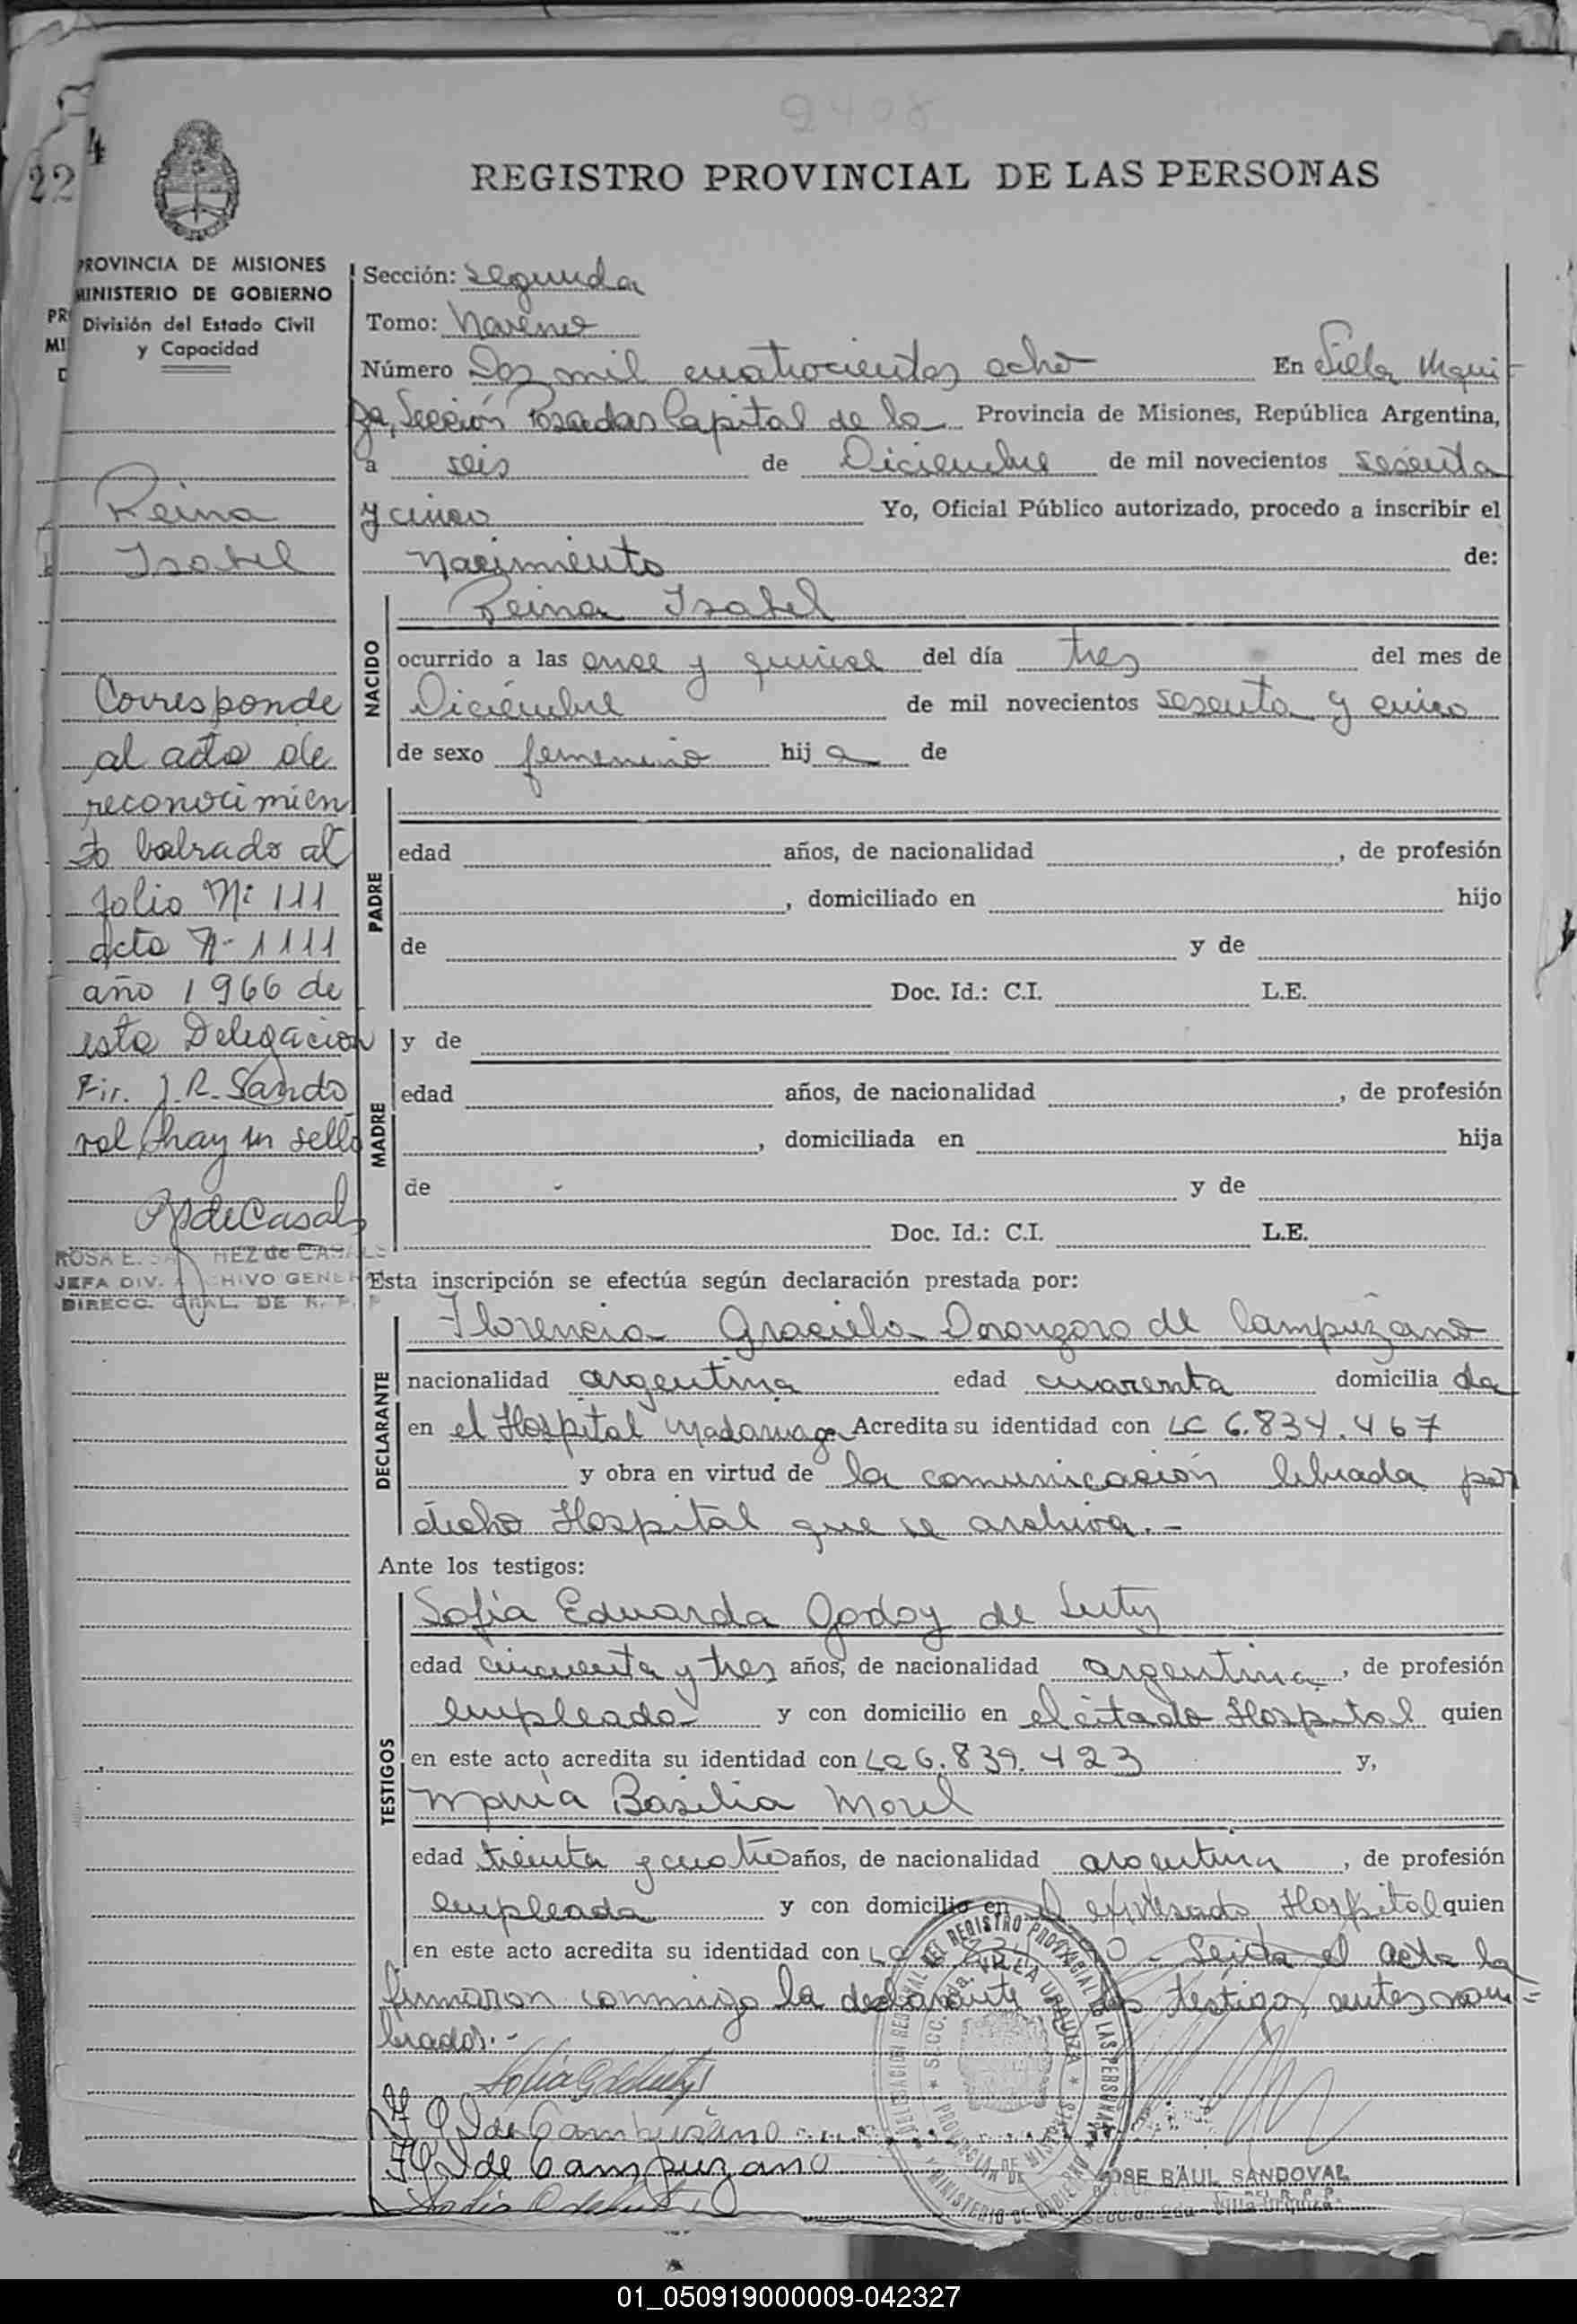 2408
4
22
REGISTRO PROVINCIAL DE LAS PERSONAS
PROVINCIA DE MISIONES
MINISTERIO DE GOBIERNO
División del Estado Civil
y Capacidad
Reina
Isabel
Corresponde
al acta de
reconocimien
to labrado al
folio Nº 111
acta Nº 1111
año 1966 de
esta Delegacion
Fir. J. R. Sando
val hay un sello
R S de Casals
ROSA E. HEZ de CASALS
JEFA DIV. ARCHIVO GENER
DIRECC. GRAL. DE R. P. P
Sección: Segunda
Tomo: Noveno
Número Dos mil cuatrocientos ocho En Villa Urqui
za, Sección Posadas Capital de la Provincia de Misiones, República Argentina,
a seis de Diciembre de mil novecientos sesenta
y cinco Yo, Oficial Público autorizado, procedo a inscribir el
nacimiento de:
NACIDO
Reina Isabel
ocurrido a las once y quince del día tres del mes de
Diciembre de mil novecientos sesenta y cinco
de sexo femenino hija de
PADRE
edad años, de nacionalidad , de profesión
, domiciliado en hijo
de y de
Doc. Id.: C.I. L.E.
MADRE
y de
edad años, de nacionalidad , de profesión
, domiciliada en hija
de y de
Doc. Id.: C.I. L.E.
Esta inscripción se efectúa según declaración prestada por:
DECLARANTE
Florencia Graciela Doronzoro de Campuzano
nacionalidad argentina edad cuarenta domiciliada
en el Hospital Madariaga Acredita su identidad con LC 6.834.467
y obra en virtud de la comunicación librada por
dicho Hospital que se archiva.-
Ante los testigos:
TESTIGOS
Sofia Eduarda Godoy de Luty
edad cincuenta y tres años, de nacionalidad argentina, de profesión
empleada y con domicilio en el citado Hospital quien
en este acto acredita su identidad con LC 6.839.423 y,
María Basilia Morel
edad treinta y cuatro años, de nacionalidad argentina, de profesión
empleada y con domicilio en el expresado Hospital quien
en este acto acredita su identidad con LC - Leida el acta la
firmaron conmigo la declarante los testigos antes nom=
brados.-
F G D de Campuzano
F G D de Campuzano
DELEGACION REGIONAL DEL REGISTRO PROVINCIAL DE LAS PERSONAS
MINISTERIO DE GOBIERNO
SECC. 2da. VILLA URQUIZA
PROVINCIA DE MISIONES
JOSE RAUL SANDOVAL
Sección 2da - Villa Urquiza
01_050919000009-042327